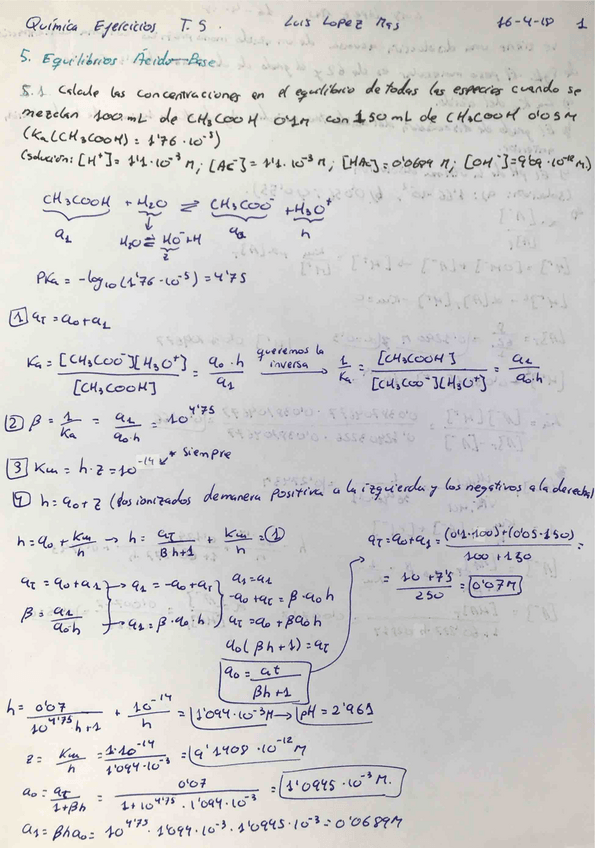 Química Ejercicios T.5. Luis López Mas 16-4-18 1
5. Equilibrios Ácido-Base
5.1 Calcule las concentraciones en el equilibrio de todas las especies cuando se
mezclan 100 mL de CH3COOH 0'1M con 150 mL de CH3COOH 0'05M
(Ka(CH3COOH) = 1'76·10⁻⁵)
(Solución: [H⁺] = 1'1·10⁻³ M; [AC⁻] = 1'1·10⁻³ M; [HAc] = 0'0689 M; [OH⁻] = 9'09·10⁻¹² M.)
CH3COOH + H2O ⇌ CH3COO⁻ + H3O⁺
a1 a0 h
H2O ⇌ HO⁻ + H
z
PKa = -log10 (1'76·10⁻⁵) = 4'75
1 aT = a0 + a1
Ka = [CH3COO⁻][H3O⁺] / [CH3COOH] = a0·h / a1 queremos la inversa → 1/Ka = [CH3COOH] / [CH3COO⁻][H3O⁺] = a1 / a0·h
2 β = 1/Ka = a1 / a0·h = 10^4'75
3 Kw = h·z = 10⁻¹⁴ Siempre
4 h = a0 + z (los ionizados de manera positiva a la izquierda y los negativos a la derecha)
h = a0 + Kw/h → h = aT / βh+1 + Kw/h = 1
aT = a0 + a1 = (0'1·100) + (0'05·150) / 100 + 150 =
= 10 + 7'5 / 250 = 0'07M
aT = a0 + a1 → a1 = -a0 + aT
β = a1 / a0·h → a1 = β·a0·h
a1 = a1
-a0 + aT = β·a0h
aT = a0 + βa0h
a0(βh+1) = aT
a0 = at / βh+1
h = 0'07 / 10^4'75 h+1 + 10⁻¹⁴ / h = 1'094·10⁻³M → pH = 2'961
z = Kw / h = 1·10⁻¹⁴ / 1'094·10⁻³ = 9'1408·10⁻¹² M
a0 = aT / 1+βh = 0'07 / 1+10^4'75·1'094·10⁻³ = 1'0945·10⁻³ M.
a1 = βha0 = 10^4'75·1'094·10⁻³·1'0945·10⁻³ = 0'0689M